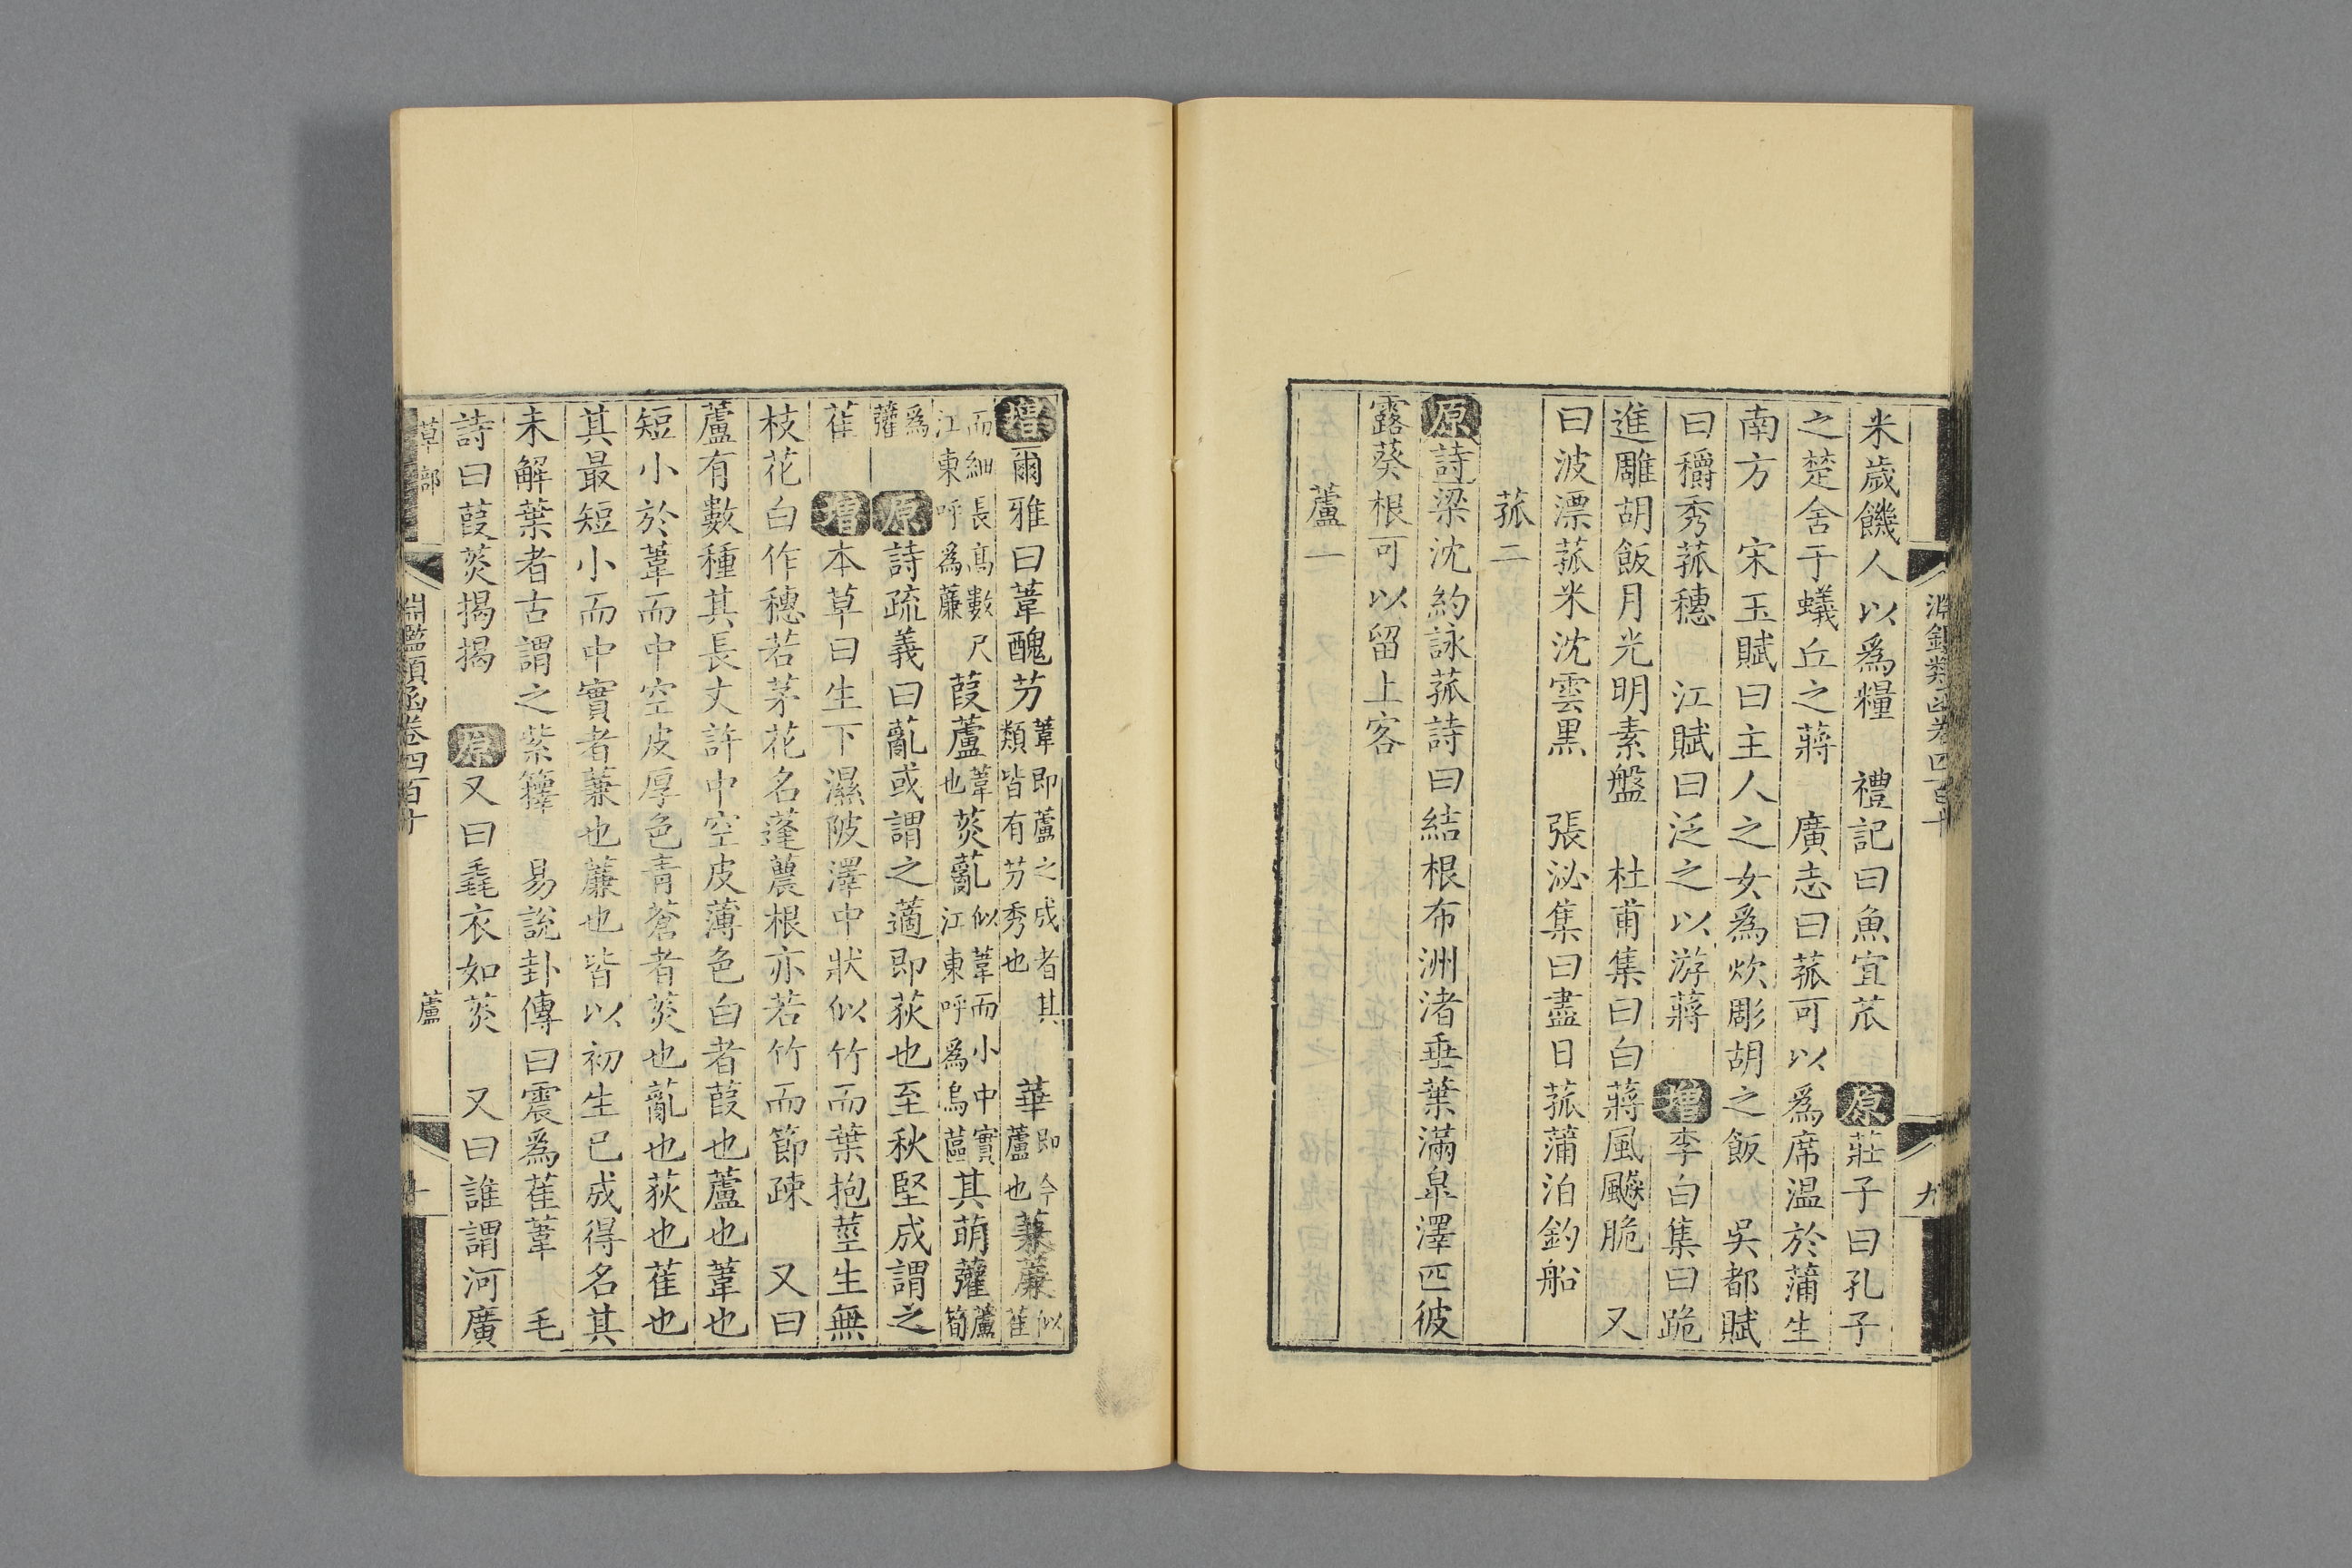 淵鑑類函卷四百十
九
米歲饑人以爲糧　禮記曰魚宜苽　原莊子曰孔子
之楚舍于蟻丘之蔣　廣志曰菰可以爲席溫於蒲生
南方　宋玉賦曰主人之女爲炊彫胡之飯　吳都賦
曰穱秀菰穗　江賦曰泛之以游蔣　增李白集曰跪
進雕胡飯月光明素盤　杜甫集曰白蔣風飈脆　又
曰波漂菰米沈雲黑　張泌集曰盡日菰蒲泊釣船
菰二
原詩梁沈約詠菰詩曰結根布洲渚垂葉滿皐澤匹彼
露葵根可以留上客
蘆一
增爾雅曰葦醜芀葦即蘆之成者其類皆有芀秀也　華即今蘆也蒹薕似萑
而細長高數尺江東呼爲薕　葭蘆葦也菼薍似葦而小中實江東呼爲烏蓲其萌虇蘆筍
爲虇　原詩疏義曰薍或謂之藡即荻也至秋堅成謂之
萑　增本草曰生下濕陂澤中狀似竹而葉抱莖生無
枝花白作穗若茅花名蓬蕽根亦若竹而節疎　又曰
蘆有數種其長丈許中空皮薄色白者葭也蘆也葦也
短小於葦而中空皮厚色青蒼者菼也薍也荻也萑也
其最短小而中實者蒹也薕也皆以初生已成得名其
未解葉者古謂之紫籜　易說卦傳曰震爲萑葦　毛
詩曰葭菼揭揭　原又曰毳衣如菼　又曰誰謂河廣
草部
淵鑑類函卷四百十
蘆
十